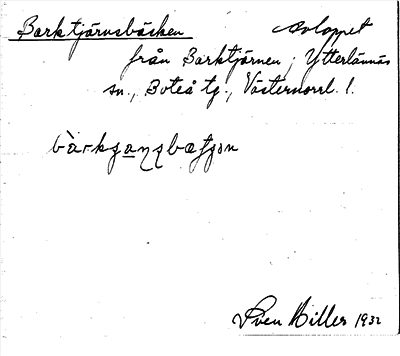 Barktjärnsbäcken avloppet
från Barktjärnen; Ytterlännäs
sn., Boteå tg., Västernorrl. l.
Sven Hiller 1932